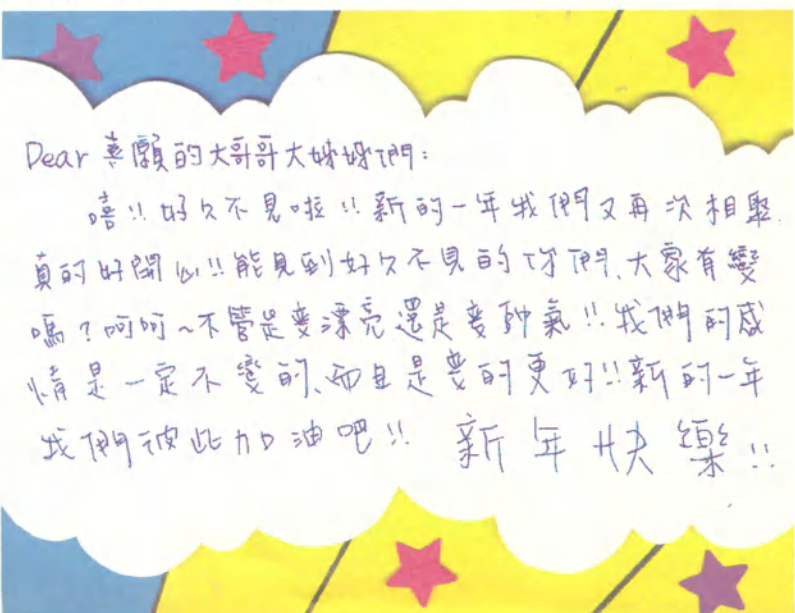 Dear 喜願的大哥哥大姊姊們:
嘻!!好久不見啦!!新的一年我們又再次相聚.
真的好開心!!能見到好久不見的你們、大家有變
嗎?呵呵~不管是變漂亮還是變帥氣!!我們的感
情是一定不變的、而且是變的更好!!新的一年
我們彼此加油吧!! 新年快樂!!